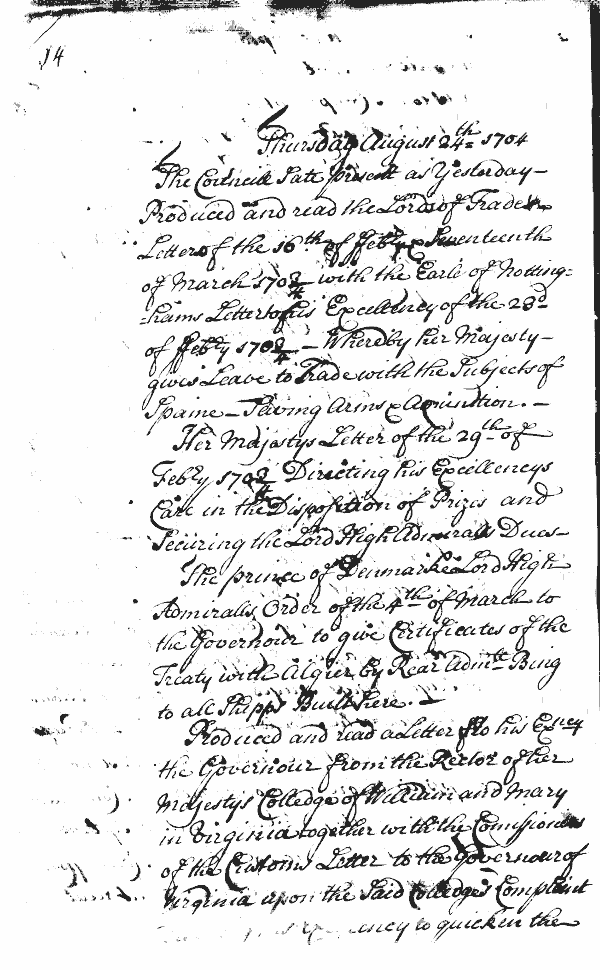 14
Thursday August 24th 1704
The Councill Sate present as Yesterday
Produced and read the Lords of Trade
Letters of the 16th of Febry & Seventeenth
of March 170¾ with the Earle of Notting=
=hams Letter to his Excellency of the 23d
of Febry 170¾ - Whereby her Majesty -
gives Leave to Trade with the Subjects of
Spaine - Saving Arms & Amunition. -
Her Majestys Letter of the 29th of
Febry 170¾ Directing his Excellencys
Care in the Disposition of Prizes and
Securing the Lord High Admiralls Dues -
The prince of Denmarke Lord High
Admiralls Order of the 4th of March to
the Governour to give Certificates of the
Treaty with Algier by Rear Admll Bing
to all Shipps Built here. -
Produced and read a Letter to his Exncy
the Governour from the Rector of her
Majestys Colledge of William and Mary
in Virginia together with the Comissioners
of the Customs Letter to the Governour of
Virginia upon the Said Colledges Complaint
to quicken the